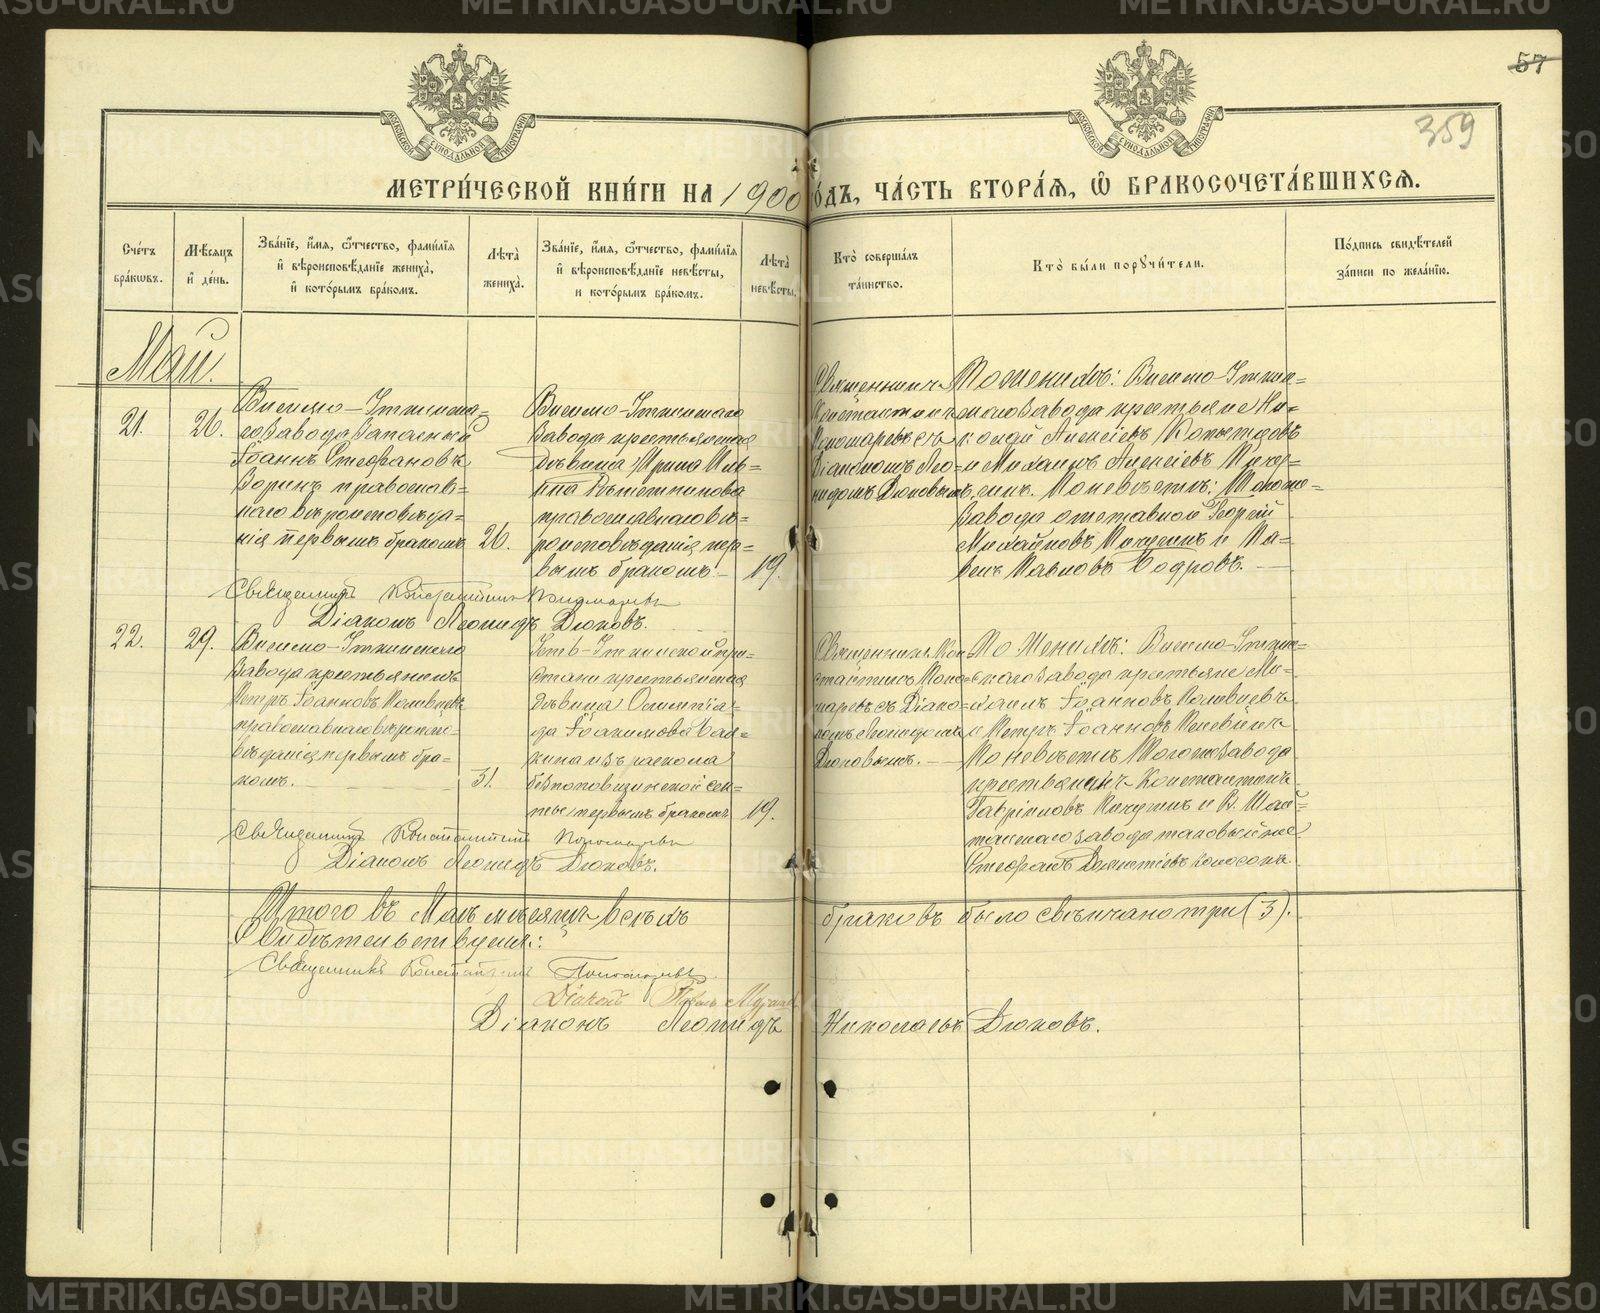 57
359
МОСКОВСКОЙ СѴНОДАЛЬНОЙ ТИПОГРАФІИ
МОСКОВСКОЙ СѴНОДАЛЬНОЙ ТИПОГРАФІИ
МЕТРИ́ЧЕСКОЙ КНИ́ГИ НА 1900 ГО́ДЪ, ЧА́СТЬ ВТОРА́Я, Ѡ БРАКОСОЧЕТА́ВШИХСЯ.
Сче́тъ бра́кѡвъ.
Мѣ́сяцъ и҆ де́нь.
Зва́нїе, и҆́мя, ѻ҆́тчество, фами́лїя и҆ вѣроисповѣ́данїе жениха̀, и҆ кото́рымъ бра́комъ.
Лѣ́та жениха̀.
Зва́нїе, и҆́мя, ѻ҆́тчество, фами́лїя и҆ вѣроисповѣ́данїе невѣ́сты, и кото́рымъ бра́комъ.
Лѣ́та невѣ́сты.
Кто̀ соверша́лъ та́инство.
Кто̀ бы́ли порꙋчи́тели.
По́дпись свидѣ́телей за́писи по жела́нїю.
Май.
21.
26.
Висимо-Уткинска=
го Завода Запасный
Іоаннъ Стефановъ
Зоринъ православ=
наго вѣроисповѣда=
нія первымъ бракомъ
26.
Висимо-Уткинскаго
Завода крестьянская
дѣвица Ирина Иль=
ина Рѣшетникова
православнаго вѣ=
роисповѣданія пер=
вымъ бракомъ.
19.
Священникъ
Константинъ
Пономаревъ съ
Діакономъ Лео=
нидомъ Дюковымъ
По женихѣ: Висимо-Уткин=
скаго Завода крестьяне Ни=
колай Алексіевъ Копытовъ
и Михаилъ Алексіевъ
По невѣстѣ: Того же
Завода отставной Георгій
Михайловъ Пичугинъ и Па=
велъ Павловъ Бодровъ.
Священникъ Константинъ Пономаревъ
Діаконъ Леонидъ Дюковъ.
22.
29.
Висимо-Уткинскаго
Завода крестьянинъ
Петръ Іоанновъ
православнаго вѣроиспо=
вѣданія первымъ бра=
комъ.
31.
Усть-Уткинской при=
стани крестьянская
дѣвица Олимпіа=
да Іоакимова
изъ раскола
безпоповщинской сек=
ты первымъ бракомъ
19.
Священникъ Кон
стантинъ Поно=
маревъ съ Діако=
номъ Леонидомъ
Дюковымъ.
По Женихѣ: Висимо-Уткин=
скаго Завода крестьяне Ми=
хаилъ Іоанновъ
и Петръ Іоанновъ
По невѣстѣ Того же Завода
крестьянинъ Константинъ
Гавріиловъ Пичугинъ и В. Шай=
танскаго завода таковый же
Стефанъ
Священникъ Константинъ Пономаревъ
Діаконъ Леонидъ Дюковъ.
Итого въ Маѣ мѣсяцѣ всѣхъ браковъ было свѣнчано три (3).
Свидѣтельствуемъ:
Священникъ Константинъ Пономаревъ.
Діаконъ
Діаконъ Леонидъ Николаевъ Дюковъ.
METRIKI.GASO-URAL.RU